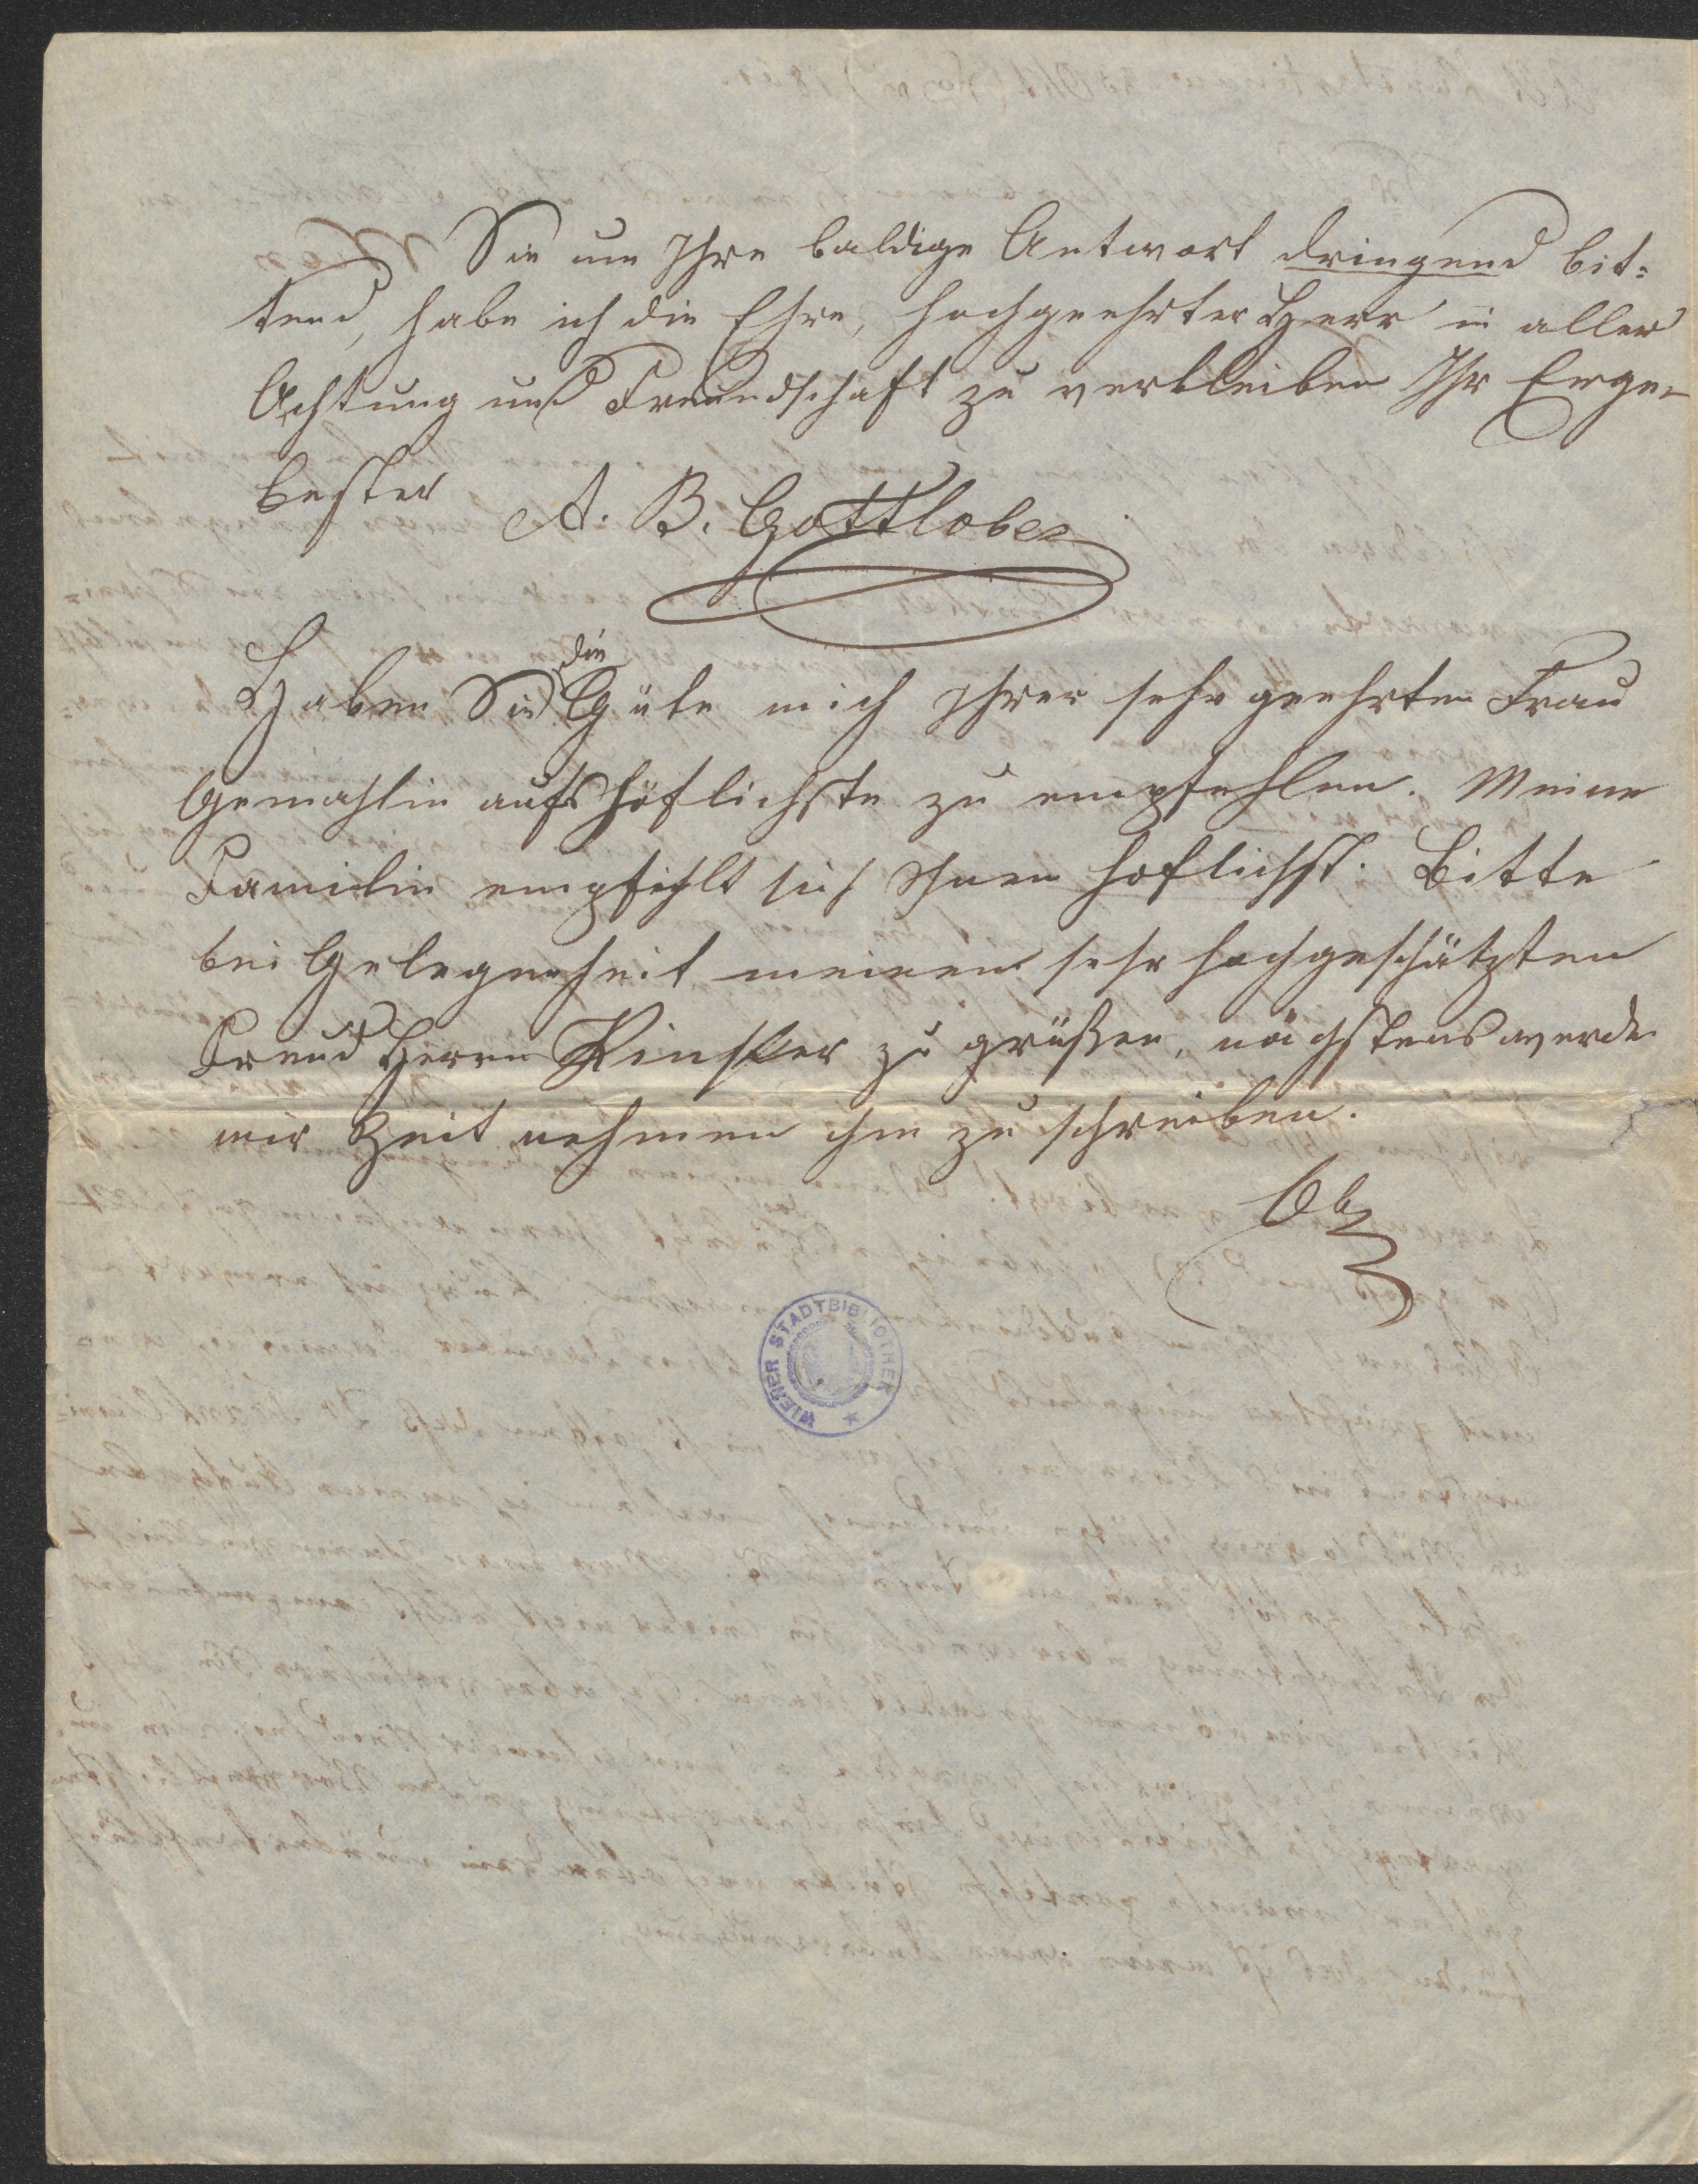 Sie um Ihre baldige Antwort dringend bit=
tend, habe ich die Ehre, hochgeehrter Herr in aller
Achtung und Freundschaft zu verbleiben Ihr Erge-
benster A. B. Gottlober
Haben Sie die Güte mich Ihrer sehr geehrten Frau
Gemahlin aufs höflichste zu empfehlen. Meine
Familie empfiehlt sich Ihnen höflichst. Bitte
bei Gelegenheit meinen sehr hochgeschätzten
Freund Herrn Pinsker zu grüßen, nächstens werde
mir Zeit nehmen ihm zu schreiben.
Obg
WIENER STADTBIBLIOTHEK